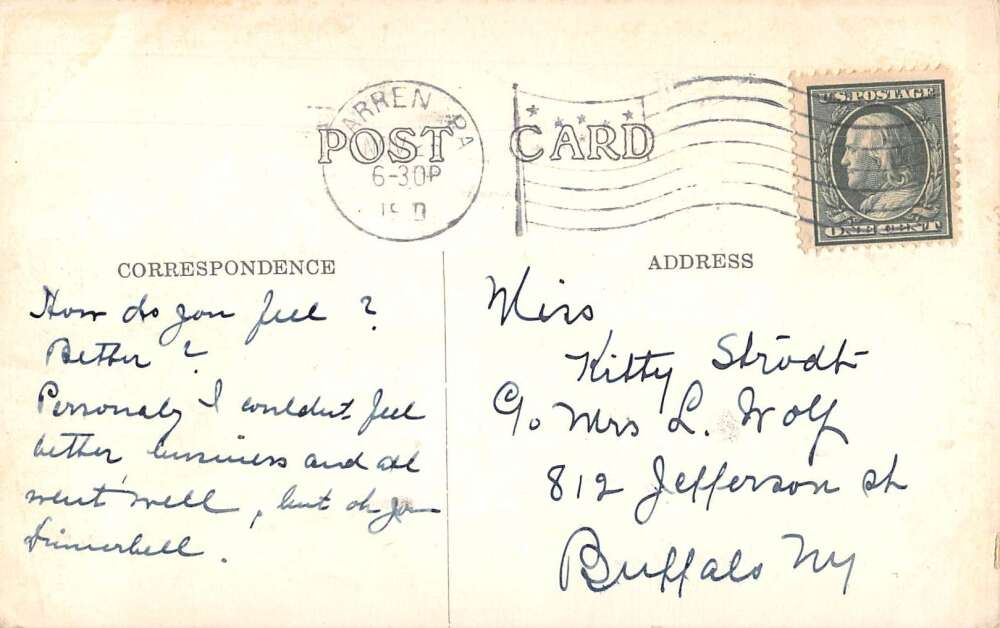 ARREN, PA
6-30P
POST CARD
U.S. POSTAGE
ONE CENT
CORRESPONDENCE
ADDRESS
How do you feel ?
Better ?
Personaly I couldn't feel
better, business and all
went well, but oh you
Dinnerbell.
Miss
Kitty Strodt
c/o Mrs L. Wolf
812 Jefferson st
Buffalo Ny